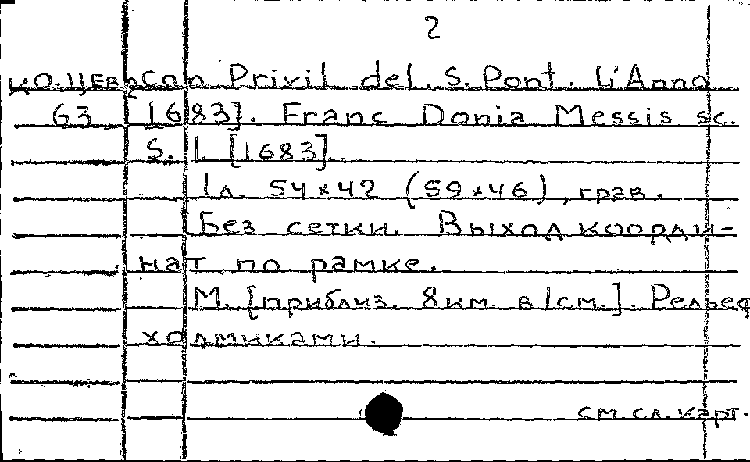 2
КО.ЦЕВ Con Privil del. S. Pont. L'Anno
63 [1683]. Franc Donia Messis sc.
S. l. [1683].
1 л. 54×42 (59×46), грав.
Без сетки. Выход коорди-
нат по рамке.
М. [приблиз. 8 км в 1 см.]. Рельеф
холмиками.
см. сл. карт.